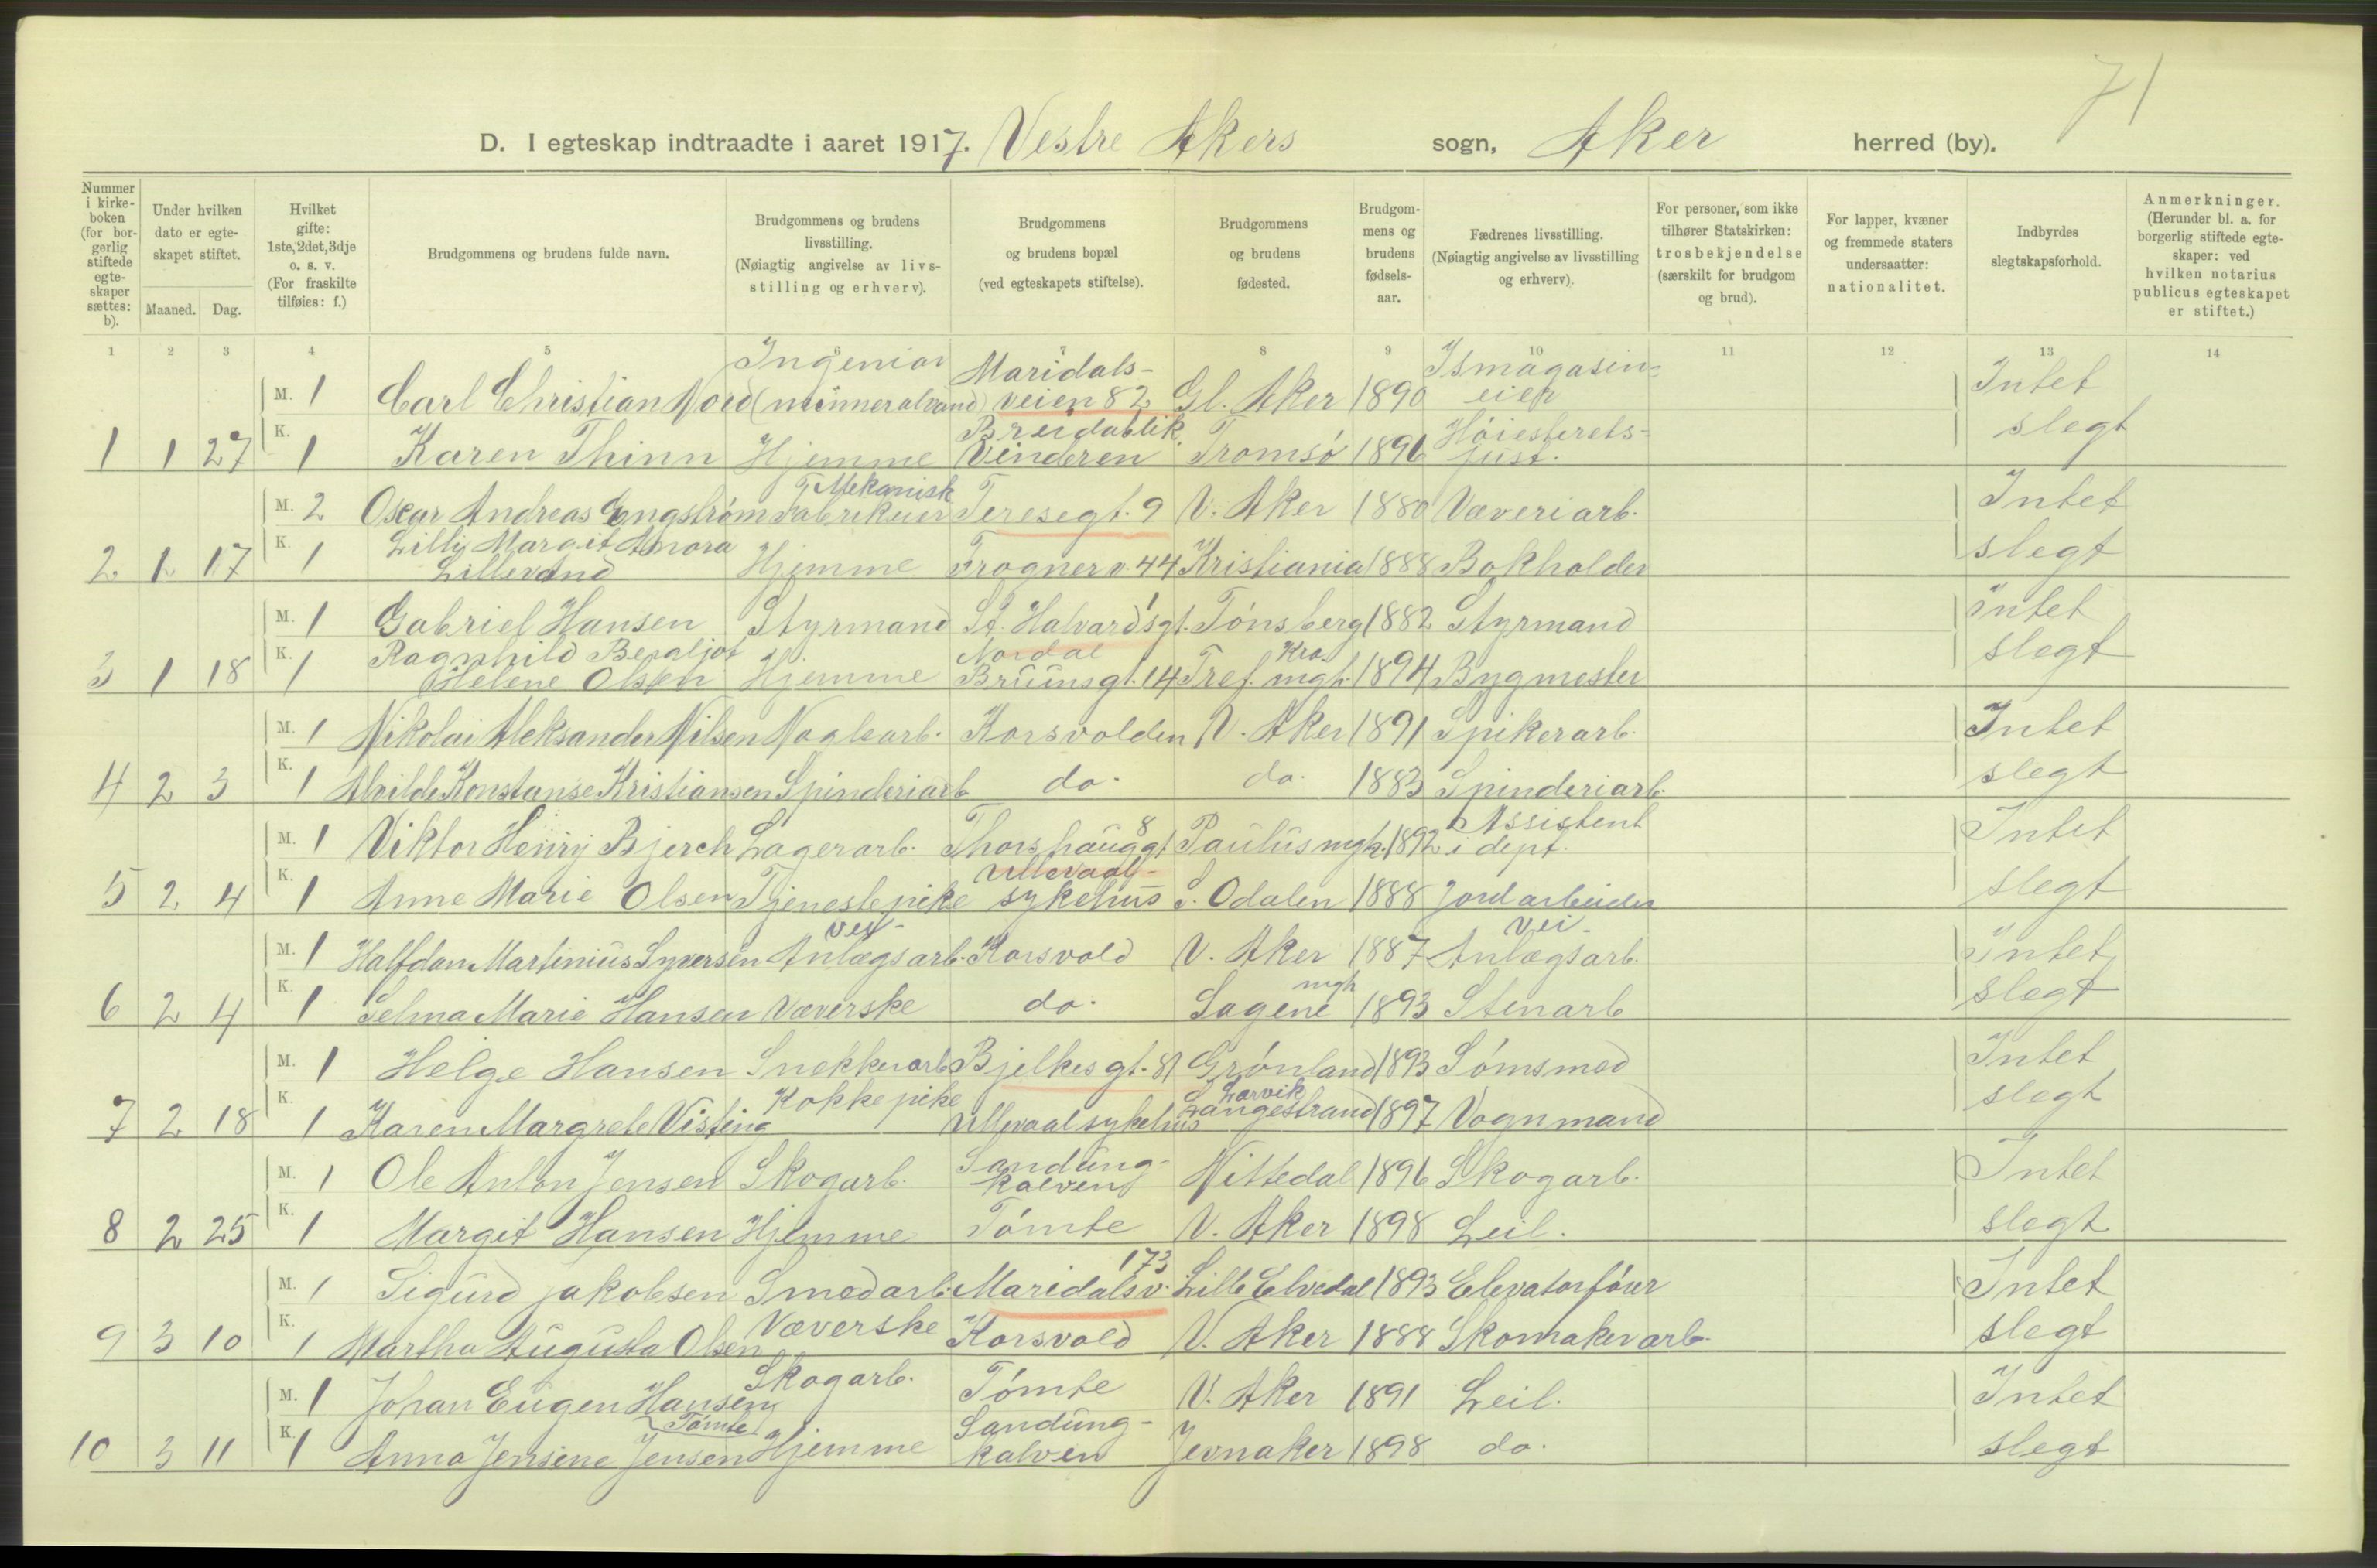 71
D. I egteskap indtraadte i aaret 1917. Vestre Akers sogn, Aker herred (by).
Nummer i kirke-boken (for bor-gerlig stiftede egte-skaper sættes: b).
Under hvilken dato er egte-skapet stiftet.
Maaned. Dag.
Hvilket gifte: 1ste, 2det, 3dje o. s. v. (For fraskilte tilføies: f.)
Brudgommens og brudens fulde navn.
Brudgommens og brudens livsstilling. (Nøiagtig angivelse av livs-stilling og erhverv).
Brudgommens og brudens bopæl (ved egteskapets stiftelse).
Brudgommens og brudens fødested.
Brudgom-mens og brudens fødsels-aar.
Fædrenes livsstilling. (Nøiagtig angivelse av livsstilling og erhverv).
For personer, som ikke tilhører Statskirken: trosbekjendelse (særskilt for brudgom og brud).
For lapper, kvæner og fremmede staters undersaatter: nationalitet.
Indbyrdes slegtskapsforhold.
Anmerkninger. (Herunder bl. a. for borgerlig stiftede egte-skaper: ved hvilken notarius publicus egteskapet er stiftet.)
1 2 3 4 5 6 7 8 9 10 11 12 13 14
M. 1 Carl Christian Nord Ingeniør (minneralvand) Maridals-veien 82 Gl. Aker 1890 Ismagasin=eier Intet
1 1 27 K. 1 Karen Thinn Hjemme Breidablik Vinderen Tromsø 1896 Høiesterets=just. slegt
M. 2 Oscar Andreas Engstrøm Mekanisk Fabrikeier Teresegt. 9 V. Aker 1880 Væveriarb. Intet
2 1 17 K. 1 Lilly Margit Amora Lillevand Hjemme Frognerv. 44 Kristiania 1888 Bokholder slegt
M. 1 Gabriel Hansen Styrmand St. Halvardsgt. 1 Tønsberg 1882 Styrmand Intet
3 1 18 K. 1 Ragnhild Bergljot Helene Olsen Hjemme Nordal Brunsgt. 14 Tref. mgh. Kra. 1894 Bygmester slegt
M. 1 Nikolai Aleksander Nilsen Naglearb. Korsvolden V. Aker 1891 Spikerarb. Intet
4 2 3 K. 1 Alvilde Konstanse Kristiansen Spinderiarb do. do. 1883 Spinderiarb. slegt
M. 1 Viktor Henry Bjerch Lagerarb. Thorshauggt 8 Paulus mgh. 1892 Assistent i dept. Intet
5 2 4 K. 1 Anne Marie Olsen Tjenestepike Ullevaal-sykehus S. Odalen 1888 Jordarbeider slegt
M. 1 Halfdan Martinius Syversen Vei-Anlægsarb. Korsvold V. Aker 1887 Vei-Anlægsarb. Intet
6 2 4 K. 1 Selma Marie Hansen Væverske do. Sagene mgh 1893 Stenarb slegt
M. 1 Helge Hansen Snekkerarb Bjelkesgt. 81 Grønland 1893 Sømsmed Intet
7 2 18 K. 1 Karen Margrete Visting Kokkepike Ullevaal sykehus Langestrand Larvik 1897 Vognmand slegt
M. 1 Ole Anton Jensen Skogarb. Sandung-kalven Nittedal 1896 Skogarb. Intet
8 2 25 K. 1 Margit Hansen Hjemme Tømte V. Aker 1898 Leil. slegt
M. 1 Sigurd Jakobsen Smedarb. Maridalsv. 173 Lille Elvedal 1893 Elevatorfører Intet
9 3 10 K. 1 Martha Augusta Olsen Væverske Korsvold V. Aker 1888 Skomakerarb. slegt
M. 1 Johan Eugen Hansen Tømte Skogarb. Tømte V. Aker 1891 Leil. Intet
10 3 11 K. 1 Anna Jensine Jensen Hjemme Sandung-kalven Jevnaker 1898 do. slegt